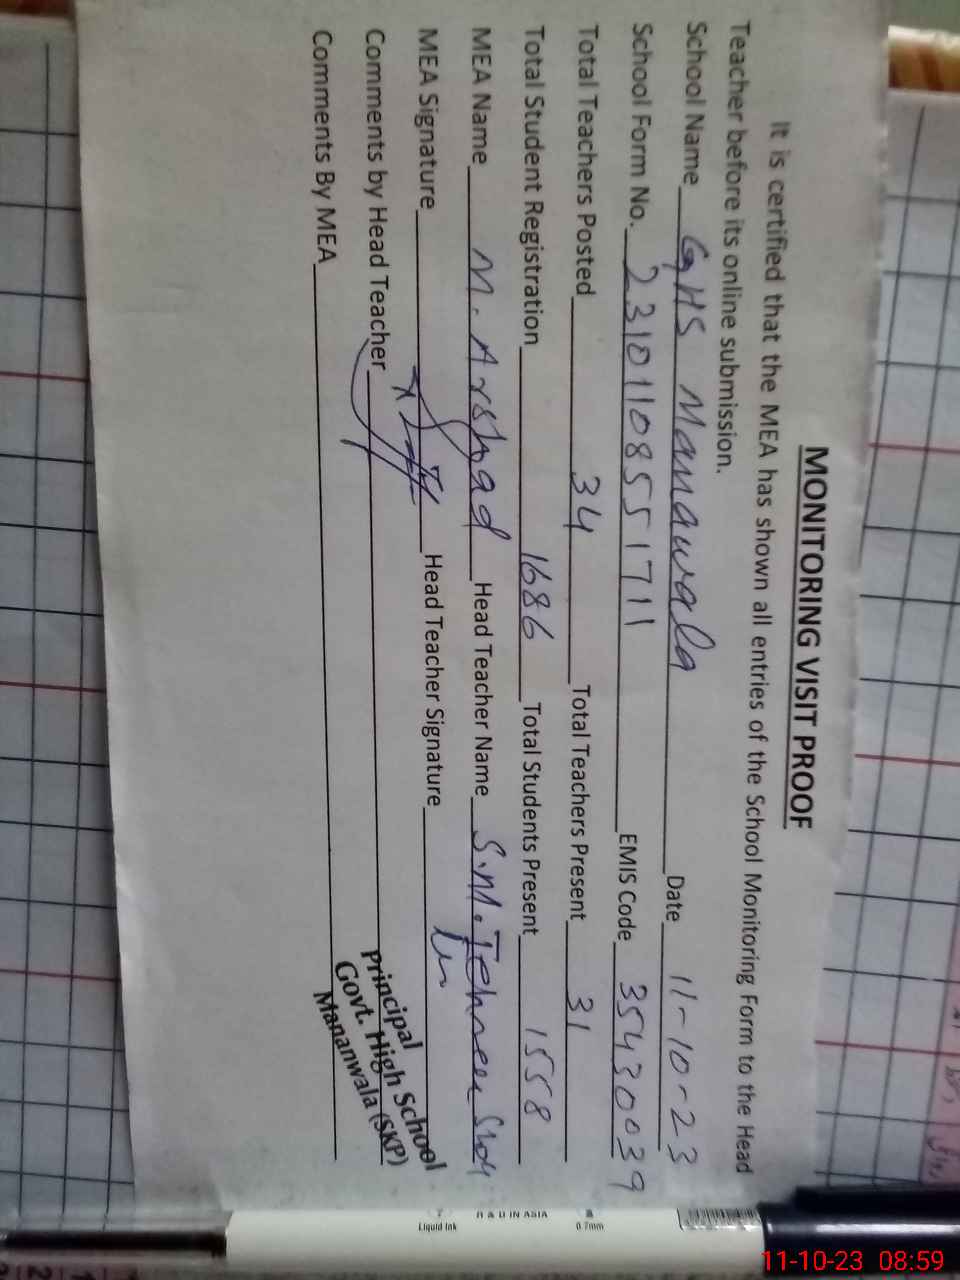 MONITORING VISIT PROOF
It is certified that the MEA has shown all entries of the School Monitoring Form to the Head
Teacher before its online submission.
School Name GHS Manawala Date 11-10-23
School Form No. 231011085517 11 EMIS Code 35430039
Total Teachers Posted 34 Total Teachers Present 31
Total Student Registration 1686 Total Students Present 1558
MEA Name M. Arshad Head Teacher Name S.M.
MEA Signature Head Teacher Signature
Comments by Head Teacher
Comments By MEA
Principal
Govt. High School
Mananwala (SKP)
MADE IN ASIA
Liquid Ink
0.7mm
11-10-23 08:59